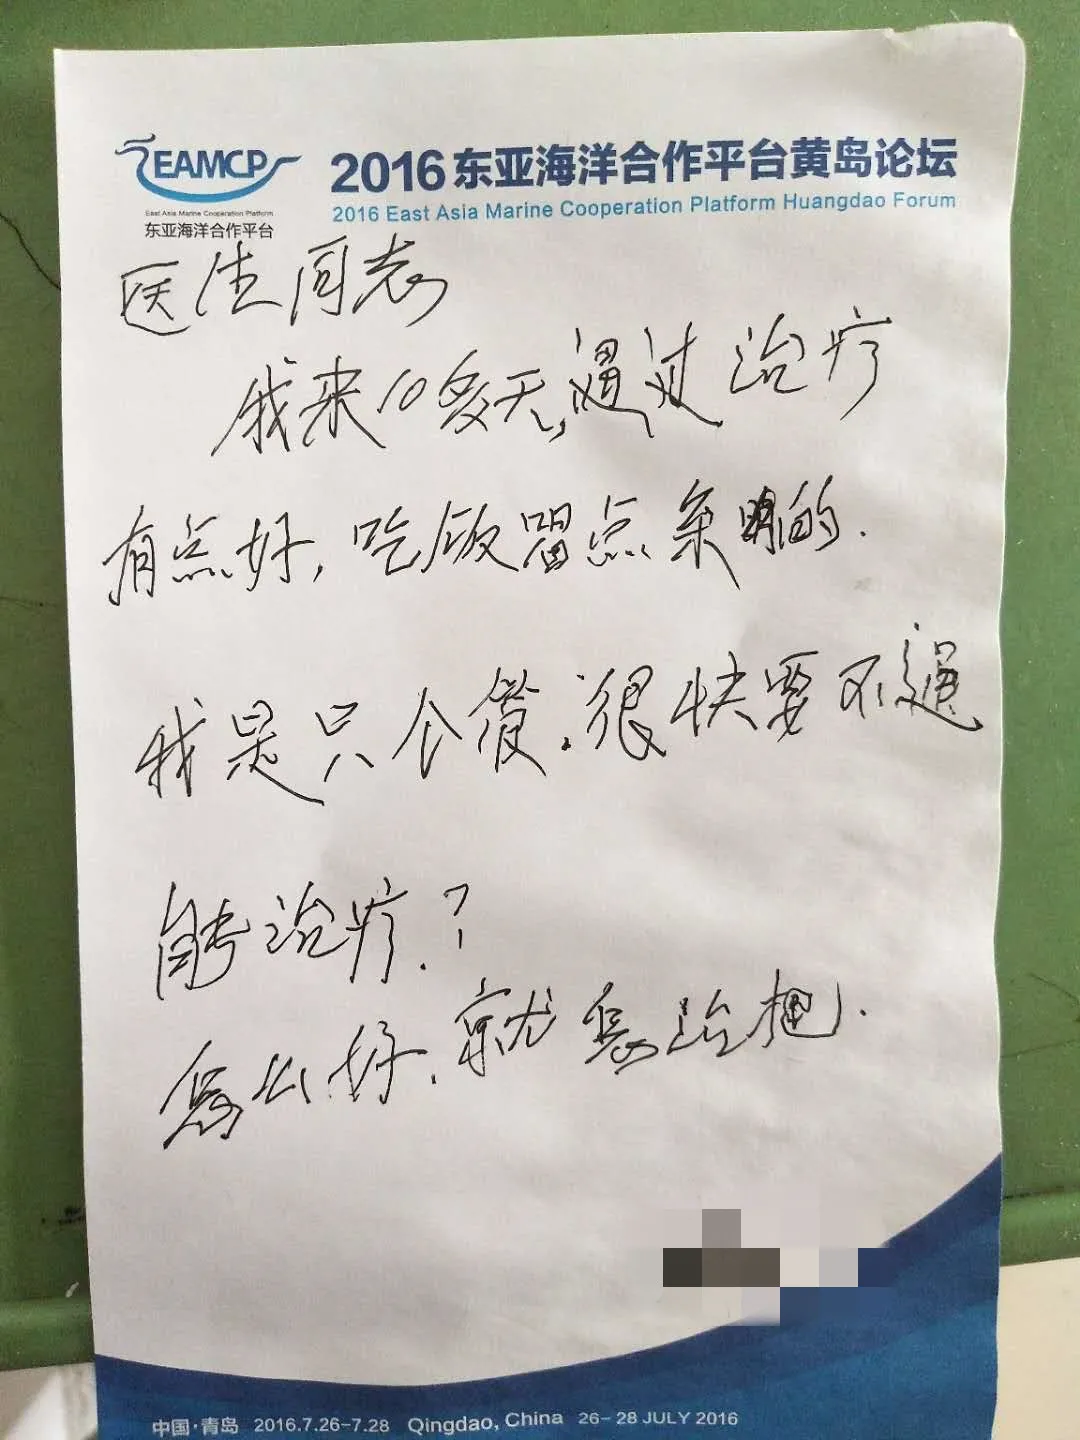 EAMCP
East Asia Marine Cooperation Platform
东亚海洋合作平台
2016东亚海洋合作平台黄岛论坛
2016 East Asia Marine Cooperation Platform Huangdao Forum
医生同志
我来10多天,通过治疗
有点好,吃饭留点条的.
我是只个,很快要不通
能治疗.?
怎么好.就怎治把.
中国·青岛 2016.7.26-7.28 Qingdao, China 26-28 JULY 2016